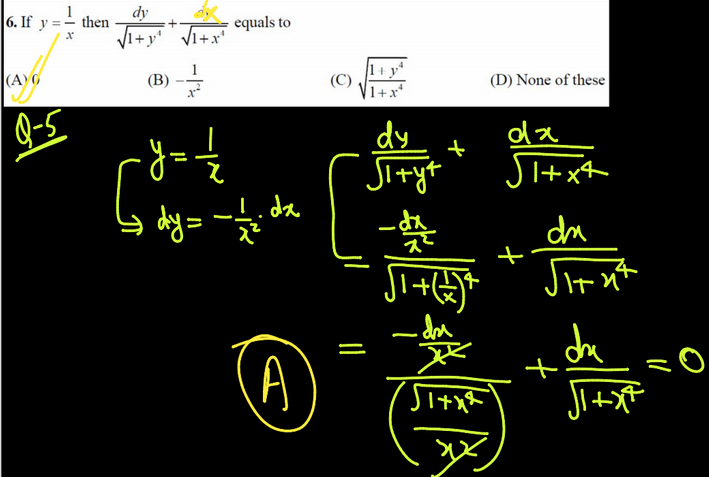 6. If y = 1/x then dy/√(1+y⁴) + dx/√(1+x⁴) equals to
(A) 0 (B) −1/x² (C) √((1+y⁴)/(1+x⁴)) (D) None of these
Q-5
y = 1/x
dy = −1/x² · dx
dy/√(1+y⁴) + dx/√(1+x⁴)
= (−dx/x²)/√(1+(1/x)⁴) + dx/√(1+x⁴)
= (−dx/x²)/(√(1+x⁴)/x²) + dx/√(1+x⁴) = 0
A